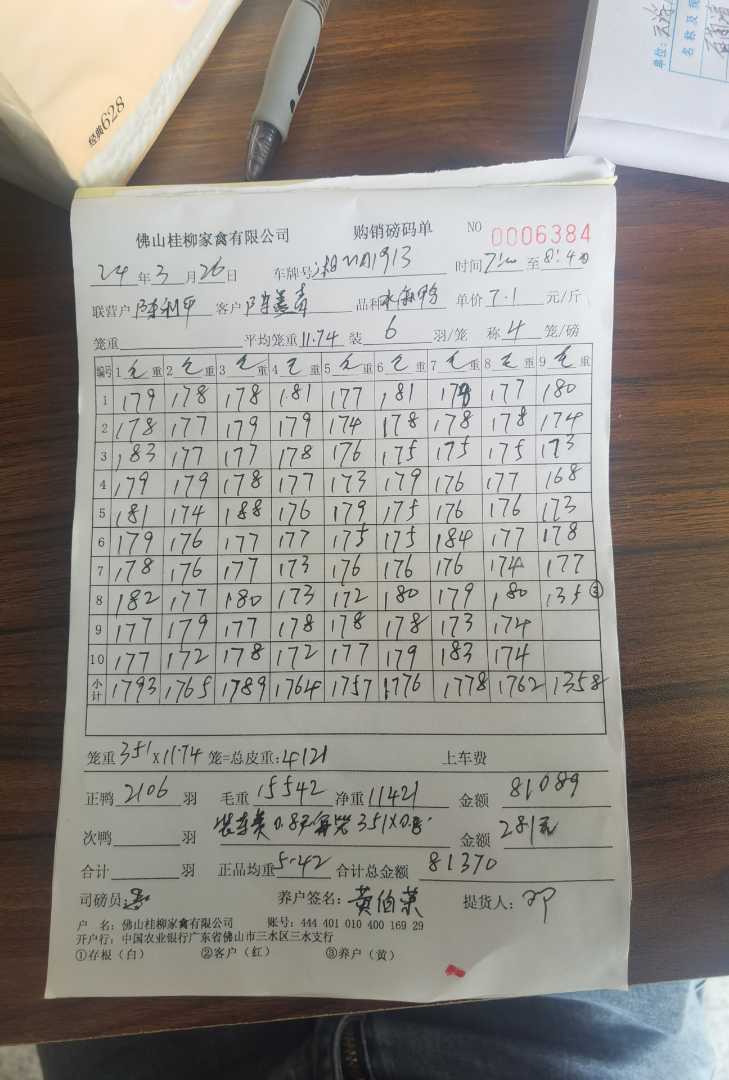 经典628
单位:
名称及规
佛山桂柳家禽有限公司 购销磅码单 NO 0006384
24年3月26日 车牌号 1913 时间 至8:40
联营户 陈利甲 客户 品种 单价7.1元/斤
笼重 平均笼重11.74 装6羽/笼 称4笼/磅
编号 1毛重 2毛重 3毛重 4毛重 5毛重 6毛重 7毛重 8毛重 9毛重
1 179 178 178 181 177 181 178 177 180
2 178 177 179 179 174 178 178 178 174
3 183 177 177 178 176 175 175 175 173
4 179 179 178 177 173 179 176 177 168
5 181 174 188 176 179 175 176 176 173
6 179 176 177 177 175 175 184 177 178
7 178 176 177 173 176 176 176 174 177
8 182 177 180 173 172 180 179 180 135③
9 177 179 177 178 178 178 173 174
10 177 172 178 172 177 179 183 174
小计 1793 1765 1789 1764 1757 1776 1778 1762 1358
笼重351×11.74笼=总皮重:4121 上车费
正鸭2106羽 毛重15542 净重11421 金额81089
次鸭 羽 装车费0.8元每笼351×0.8 金额281元
合计 羽 正品均重5.42 合计总金额81370
司磅员: 养户签名:黄伯荣 提货人:邓
户 名:佛山桂柳家禽有限公司 账号:444 401 010 400 169 29
开户行:中国农业银行广东省佛山市三水区三水支行
①存根(白) ②客户(红) ③养户(黄)